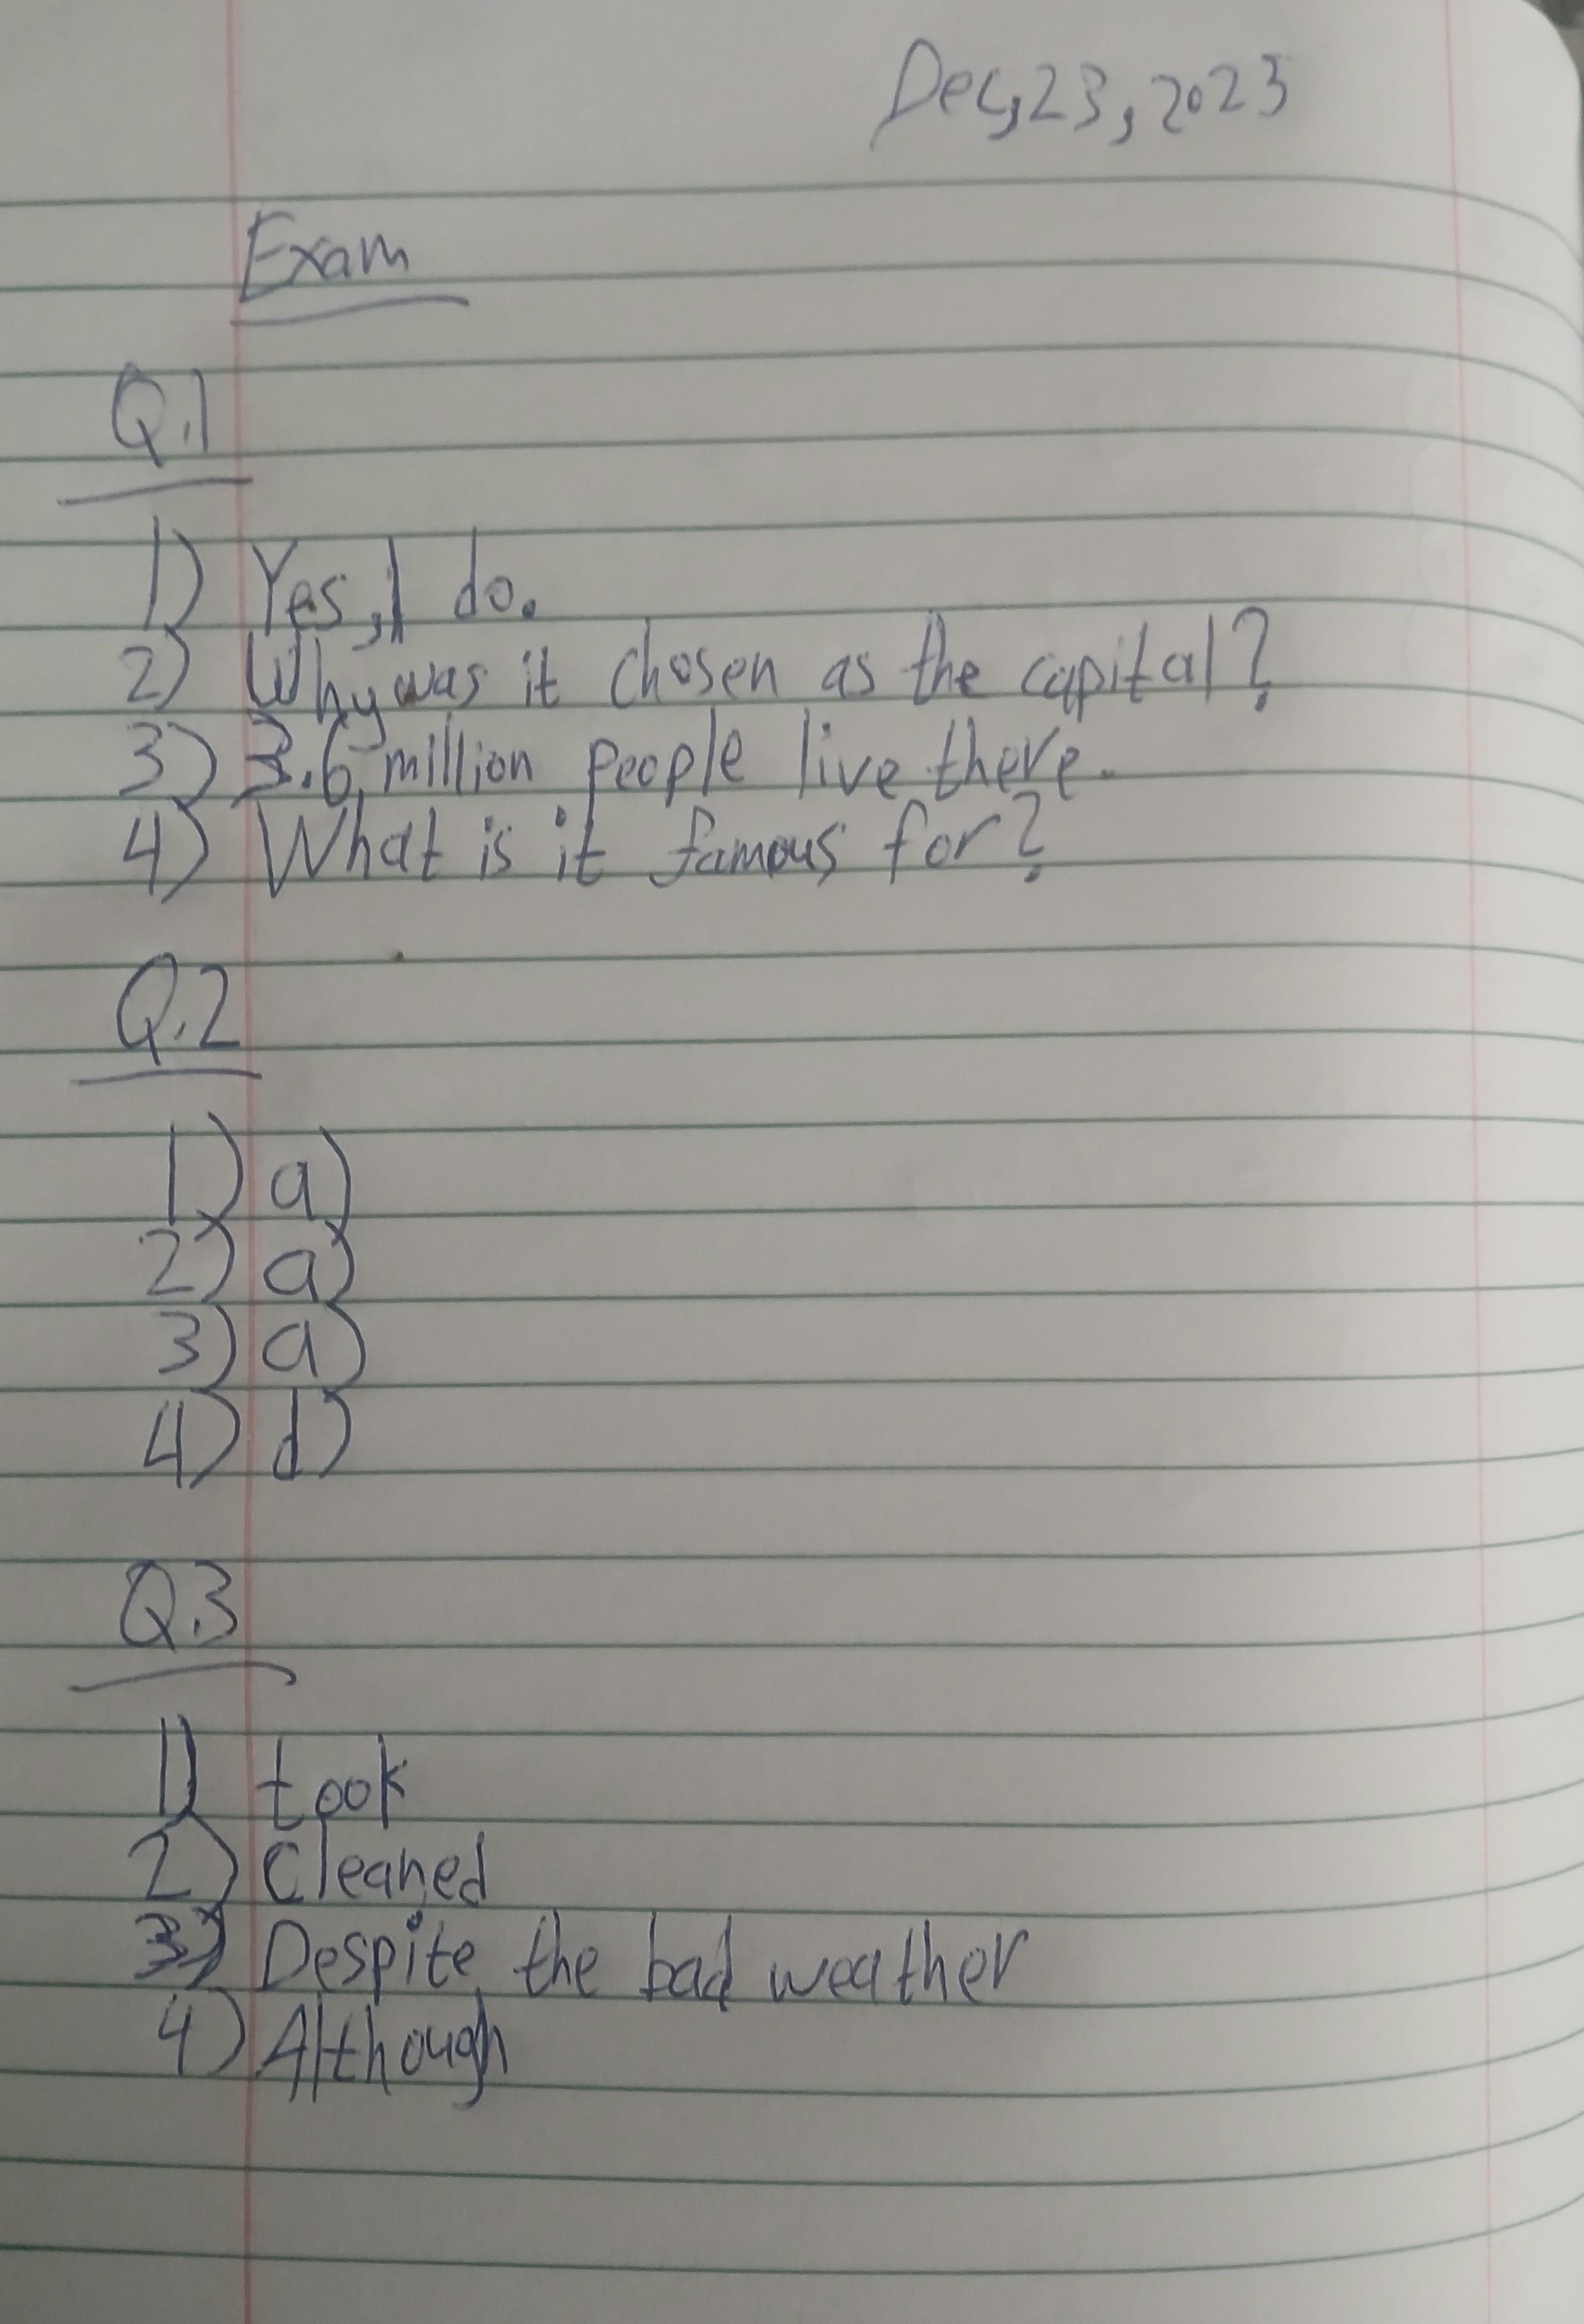 Dec,23,2023
Exam
Q.1
1) Yes, I do.
2) Why was it chosen as the capital?
3) 3.6 million people live there.
4) What is it famous for?
Q.2
1) a)
2) a)
3) a)
4) d)
Q.3
1) took
2) Cleaned
3) Despite the bad weather
4) Although